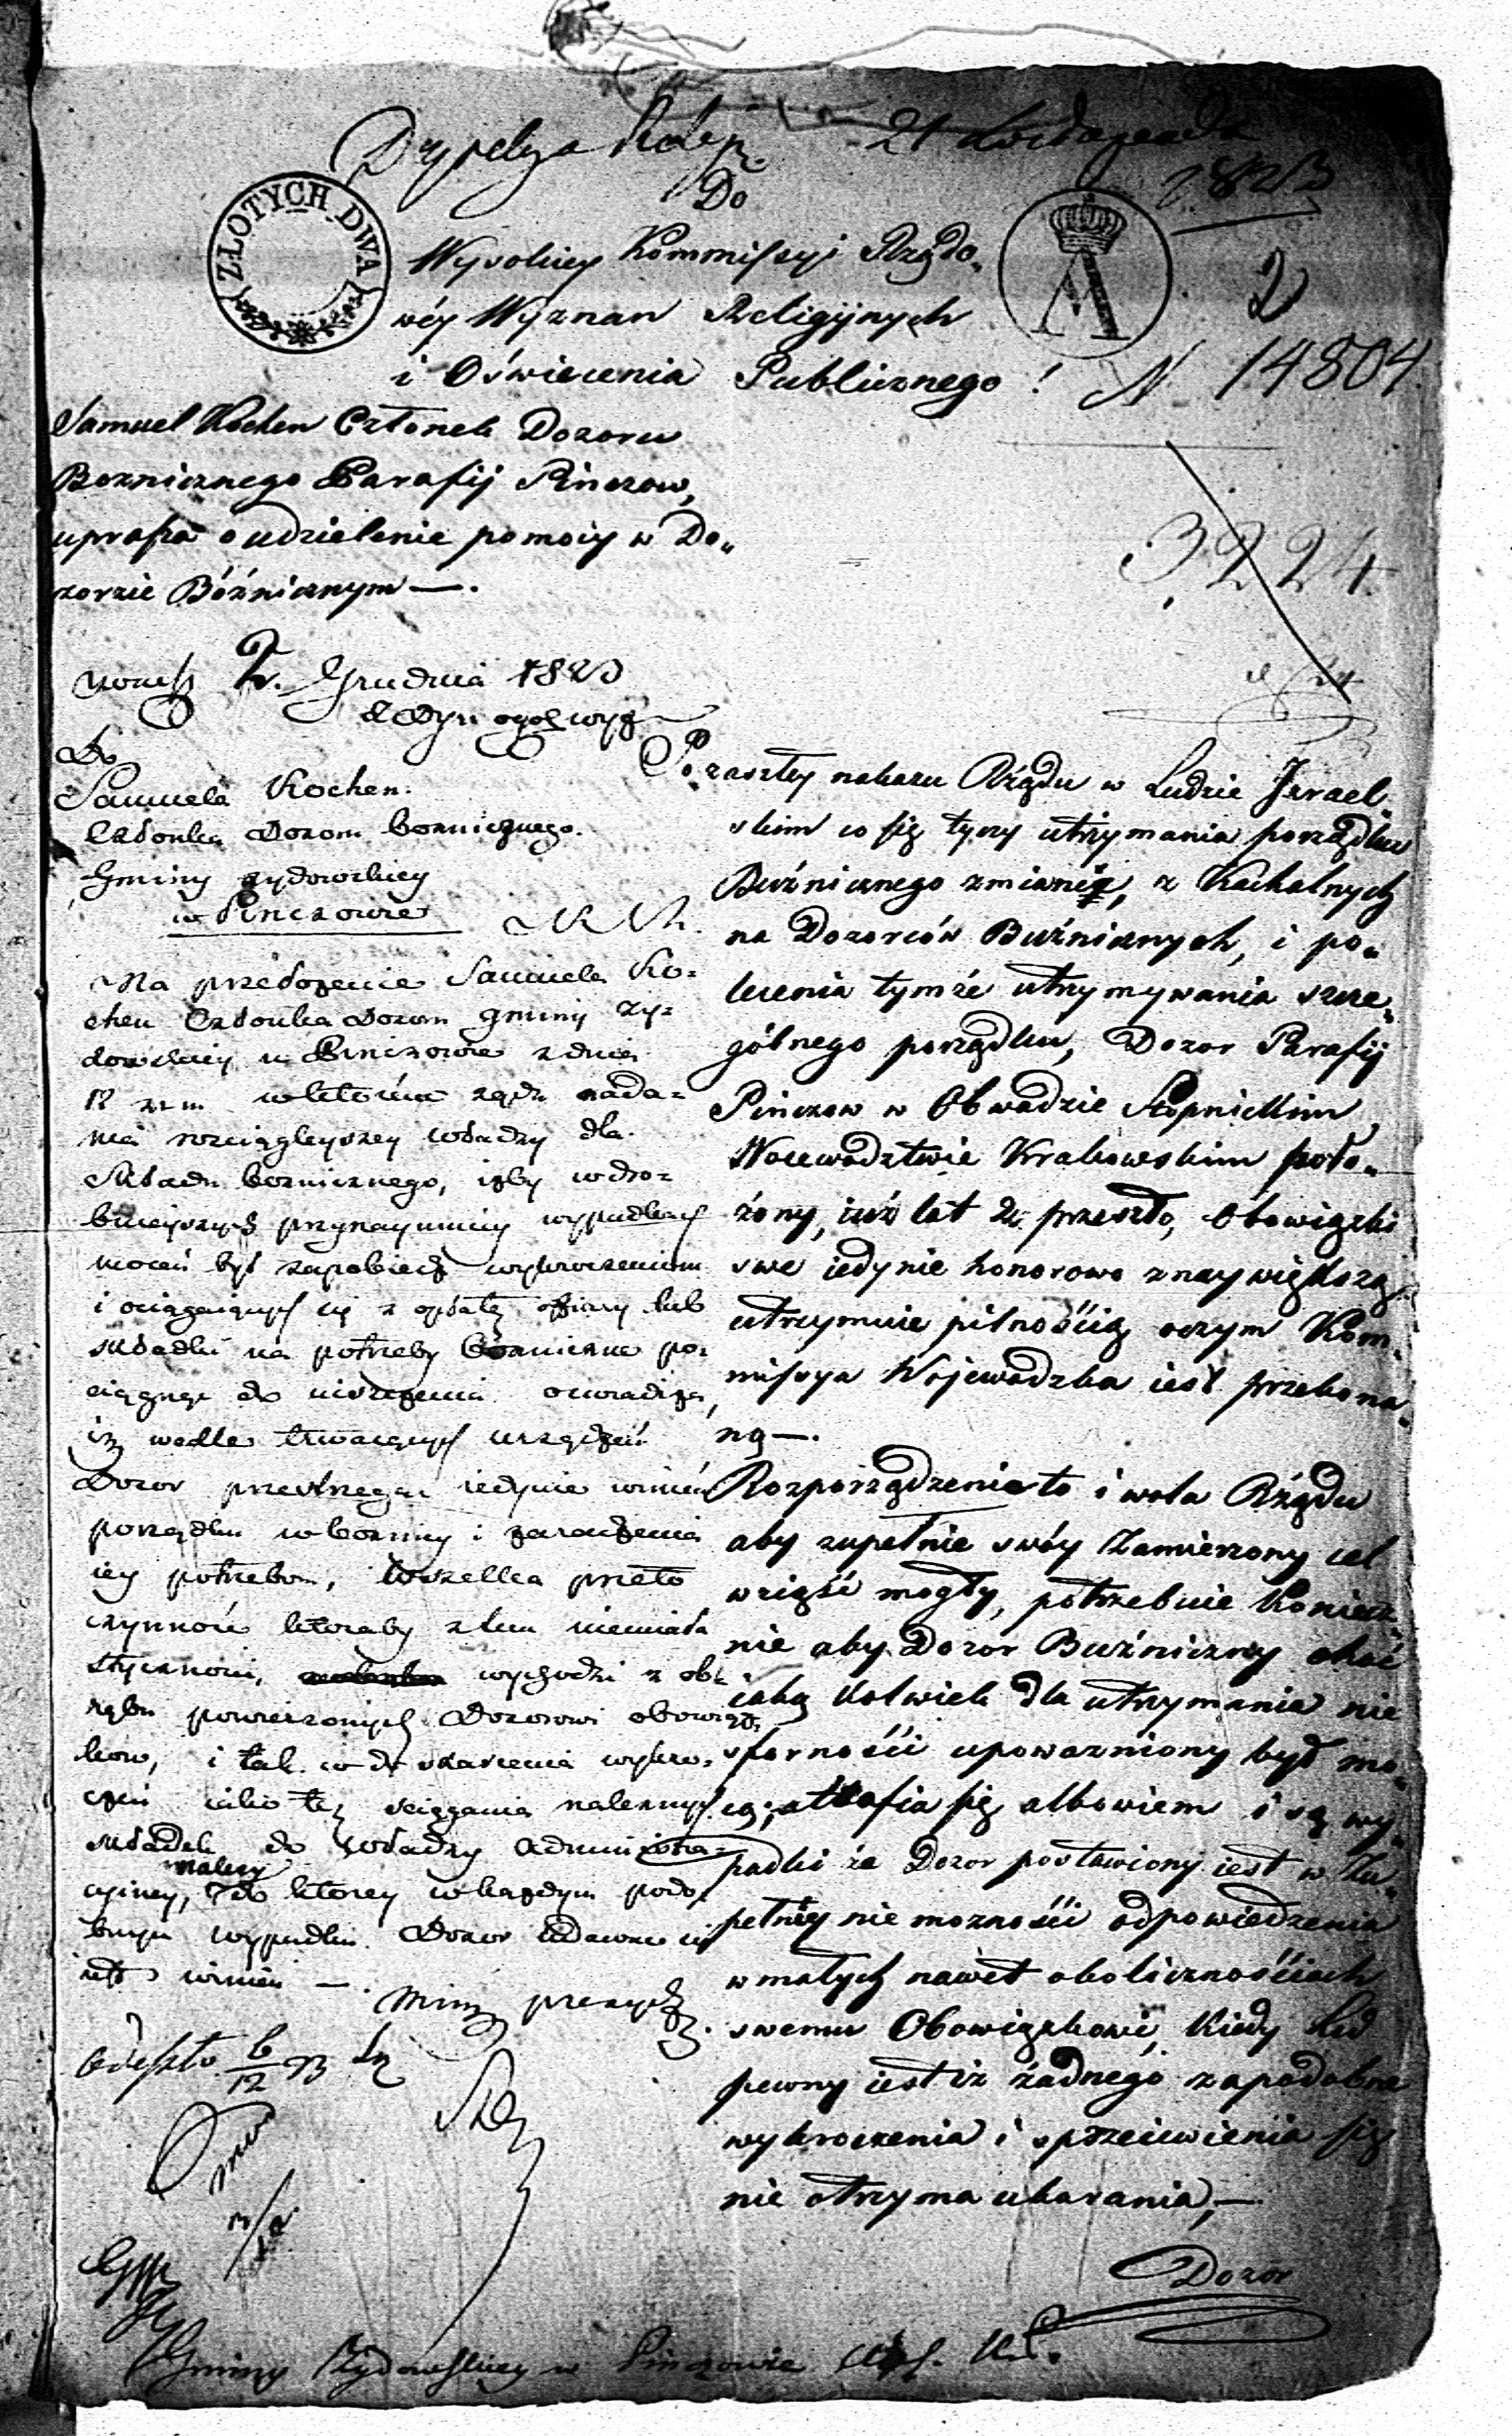 21 Listopada
1823
Do
ZŁOTYCH DWA
Wysokiey Kommissyi Rządo„
wéy Wyznan Religijnych
i Oświecenia Publicznego!
2
N 14804.
Samuel Kochen Członek Dozoru
Boznicznego Parafij Pinczow,
uprasza o udzielenie pomocy w Do„
zorze Bóźnicznym —.
3224.
2. Grudnia 1823
Do
Samuela Kochen.
Członka Dozoru boznicznego.
Gminy zydowskiey
w Pinczowie
Na przedozenie Samuela Ko=
chen Członka Dozoru gminy zy=
dowskiey w Pinczowie z dnia
12 z. m. w ktorém ząda nada=
nia rozciągleyszey władzy dla
Składu boznicznego, izby w dro=
bnieyszych przynaymniey wypadkach
mocen był zapobiedz wykroczeniom
i ociągaiących się z opłatą ofiary lub
składki na potrzeby bozniczne po=
ciągnąć do uiszczenia oswiadcza,
iz wedle trwaiących urządzeń
Dozor przestrzegać iedynie winień
porządku w boznicy i zaradzenia
iey potrzebom, wszelka przeto
czynnosc ktoraby z tem niemiała
styczności, wychodzi z ob=
rębu powierzonych Dozorowi obowiąz„
kow, i tak w do skarcenia wykro„
czeń iako też sciągania naleznych
składek do władzy administra=
cyiney, należy do ktorey w kazdym podo„
bnym wypadku Dozor udawac się
winien —.
Min. prezyd.
6/12 23
Po zaszłey nakazu Rządu w Ludzie Izrael„
skim co się tyczy utrzymania porządku
Buźnicznego zmianie, z Kachalnych
na Dozorców Buźnicznych, i po„
lecenia tymże utrzymywania szcze„
gólnego porządku, Dozor Parafij
Pińczow w Obwodzie Stopnickim
Wojewodztwie Krakowskim poło„
żony, iuż lat 2 przeszło, Obowiązki
swe iedynie honorowo z naywiększą
utrzymuie pilnością, oczym Kom„
missya Wojewodzka iest przekona„
ną —.
Rozporządzenia to i wola Rządu
aby zupełnie swóy Zamierzony cel
wziąść mogły, potrzebuie Koniecz„
nie aby Dozor Buźniczny choć
iaką Kolwiek dla utrzymania nie
sfornośći upowazniony był mo„
cą; atrafia się albowiem i są wy„
padki że Dozor postawiony iest w Zu„
pełnéy nie moznośći odpowiedzenia
w małych nawet okolicznościach
swemu Obowiązkowi, Kiedy Lud
pewny iest iż żadnego za podobne
wykroczenia i sprzeciwienia się
nie otrzyma ukarania, —
Dozor
Gminy Zydowskiey w Pinczowie